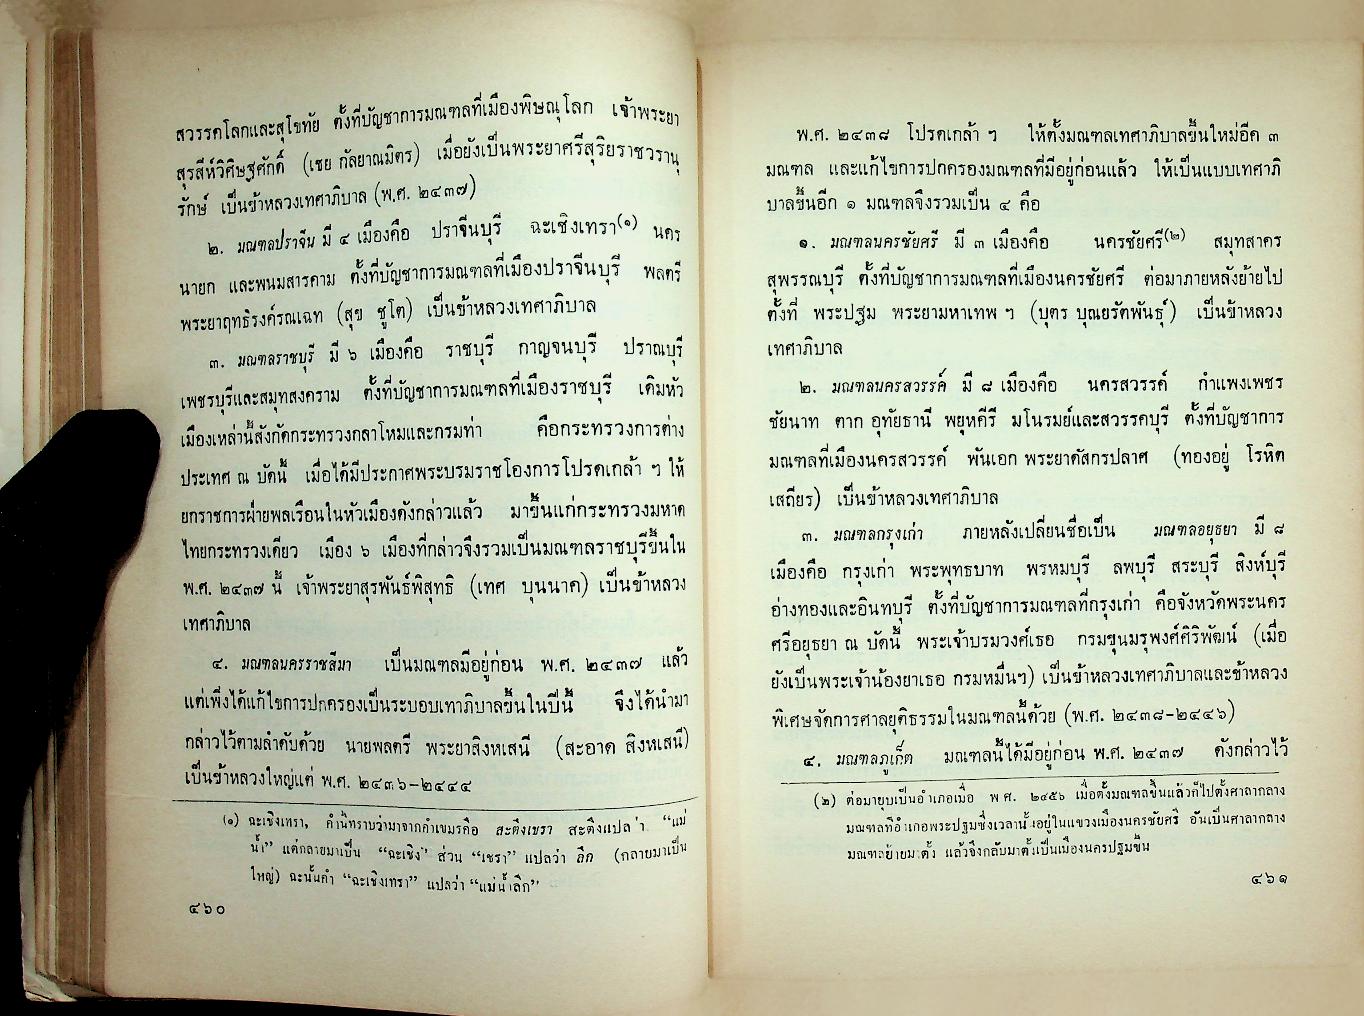 สวรรคโลกและสุโขทัย ตั้งที่บัญชาการมณฑลที่เมืองพิษณุโลก เจ้าพระยา
สุรสีห์วิศิษฐศักดิ์ (เชย กัลยาณมิตร) เมื่อยังเป็นพระยาศรีสุริยราชวรานุ
รักษ์ เป็นข้าหลวงเทศาภิบาล (พ.ศ. ๒๔๓๗)
๒. มณฑลปราจีน มี ๔ เมืองคือ ปราจีนบุรี ฉะเชิงเทรา(๑) นคร
นายก และพนมสารคาม ตั้งที่บัญชาการมณฑลที่เมืองปราจีนบุรี พลตรี
พระยาฤทธิรงค์รณเฉท (สุข ชูโต) เป็นข้าหลวงเทศาภิบาล
๓. มณฑลราชบุรี มี ๖ เมืองคือ ราชบุรี กาญจนบุรี ปราณบุรี
เพชรบุรีและสมุทสงคราม ตั้งที่บัญชาการมณฑลที่เมืองราชบุรี เดิมหัว
เมืองเหล่านี้สังกัดกระทรวงกลาโหมและกรมท่า คือกระทรวงการต่าง
ประเทศ ณ บัดนี้ เมื่อได้มีประกาศพระบรมราชโองการโปรดเกล้า ฯ ให้
ยกราชการฝ่ายพลเรือนในหัวเมืองดังกล่าวแล้ว มาขึ้นแก่กระทรวงมหาด
ไทยกระทรวงเดียว เมือง ๖ เมืองที่กล่าวจึงรวมเป็นมณฑลราชบุรีขึ้นใน
พ.ศ. ๒๔๓๗ นี้ เจ้าพระยาสุรพันธ์พิสุทธิ (เทศ บุนนาค) เป็นข้าหลวง
เทศาภิบาล
๔. มณฑลนครราชสีมา เป็นมณฑลมีอยู่ก่อน พ.ศ. ๒๔๓๗ แล้ว
แต่เพิ่งได้แก้ไขการปกครองเป็นระบอบเทาภิบาลขึ้นในปีนี้ จึงได้นำมา
กล่าวไว้ตามลำดับด้วย นายพลตรี พระยาสิงหเสนี (สะอาด สิงหเสนี)
เป็นข้าหลวงใหญ่แต่ พ.ศ. ๒๔๓๖-๒๔๔๔
(๑) ฉะเชิงเทรา, คำนี้ทราบว่ามาจากคำเขมรคือ สะตึงเชรา สะตึงแปลว่า "แม่
น้ำ" แต่กลายมาเป็น "ฉะเชิง" ส่วน "เชรา" แปลว่า ลึก (กลายมาเป็น
ใหญ่) ฉะนั้นคำ "ฉะเชิงเทรา" แปลว่า "แม่น้ำลึก"
๔๖๐
พ.ศ. ๒๔๓๘ โปรดเกล้า ฯ ให้ตั้งมณฑลเทศาภิบาลขึ้นใหม่อีก ๓
มณฑล และแก้ไขการปกครองมณฑลที่มีอยู่ก่อนแล้ว ให้เป็นแบบเทศาภิ
บาลขึ้นอีก ๑ มณฑลจึงรวมเป็น ๔ คือ
๑. มณฑลนครชัยศรี มี ๓ เมืองคือ นครชัยศรี(๒) สมุทสาคร
สุพรรณบุรี ตั้งที่บัญชาการมณฑลที่เมืองนครชัยศรี ต่อมาภายหลังย้ายไป
ตั้งที่ พระปฐม พระยามหาเทพ ฯ (บุตร บุณยรัตพันธุ์) เป็นข้าหลวง
เทศาภิบาล
๒. มณฑลนครสวรรค์ มี ๘ เมืองคือ นครสวรรค์ กำแพงเพชร
ชัยนาท ตาก อุทัยธานี พยุหคีรี มโนรมย์และสวรรคบุรี ตั้งที่บัญชาการ
มณฑลที่เมืองนครสวรรค์ พันเอก พระยาดัสกรปลาศ (ทองอยู่ โรหิต
เสถียร) เป็นข้าหลวงเทศาภิบาล
๓. มณฑลกรุงเก่า ภายหลังเปลี่ยนชื่อเป็น มณฑลอยุธยา มี ๘
เมืองคือ กรุงเก่า พระพุทธบาท พรหมบุรี ลพบุรี สระบุรี สิงห์บุรี
อ่างทองและอินทบุรี ตั้งที่บัญชาการมณฑลที่กรุงเก่า คือจังหวัดพระนคร
ศรีอยุธยา ณ บัดนี้ พระเจ้าบรมวงศ์เธอ กรมขุนมรุพงศ์ศิริพัฒน์ (เมื่อ
ยังเป็นพระเจ้าน้องยาเธอ กรมหมื่นฯ) เป็นข้าหลวงเทศาภิบาลและข้าหลวง
พิเศษจัดการศาลยุติธรรมในมณฑลนี้ด้วย (พ.ศ. ๒๔๓๘-๒๔๔๖)
๔. มณฑลภูเก็ต มณฑลนี้ได้มีอยู่ก่อน พ.ศ. ๒๔๓๗ ดังกล่าวไว้
(๒) ต่อมายุบเป็นอำเภอเมื่อ พ ศ. ๒๔๕๖ เมื่อตั้งมณฑลขึ้นแล้วก็ไปตั้งศาลากลาง
มณฑลที่อำเภอพระปฐมซึ่งเวลานั้นอยู่ในแขวงเมืองนครชัยศรี อันเป็นศาลากลาง
มณฑลย้ายมาตั้ง แล้วจึงกลับมาตั้งเป็นเมืองนครปฐมขึ้น
๔๖๑